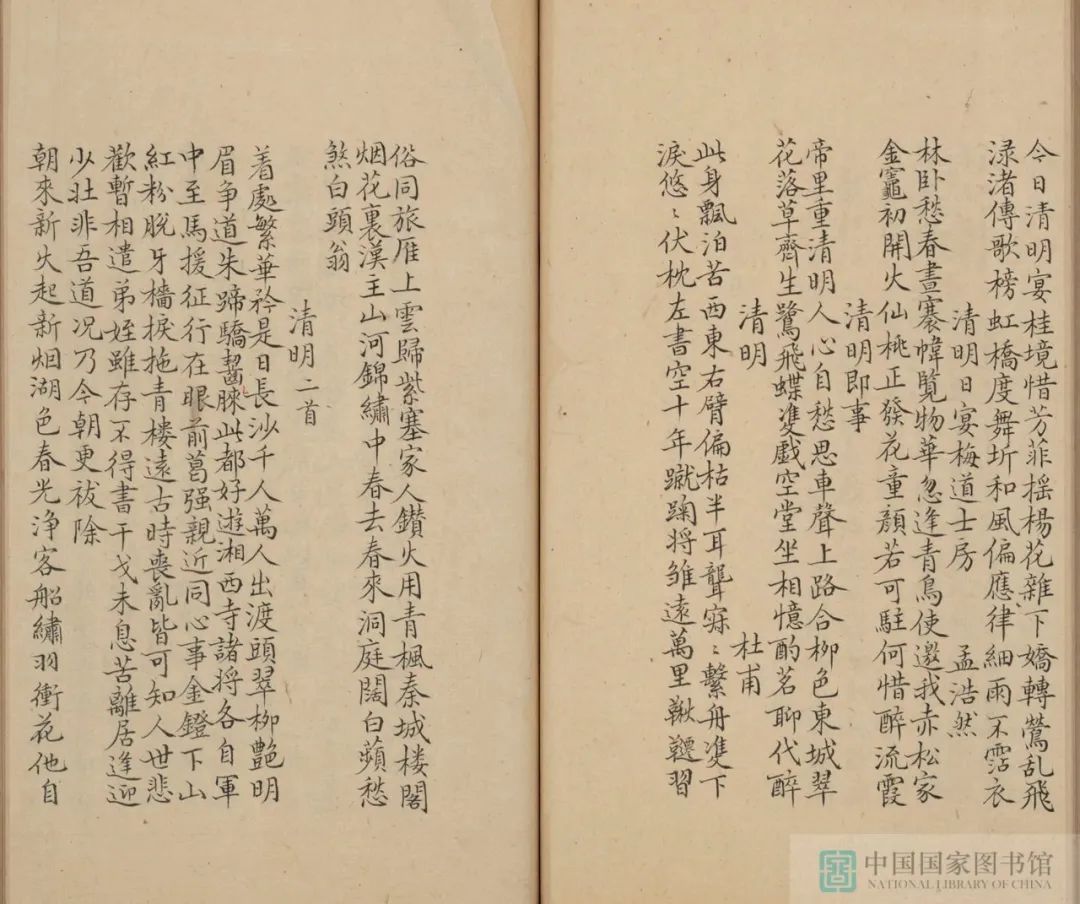 今日清明宴桂境惜芳菲摇楊花雜下嬌轉鶯乱飛
渌渚傳歌榜虹橋度舞圻和風偏應律細雨不霑衣
清明日宴梅道士房　孟浩然
林卧愁春晝褰幃覽物華忽逢青鳥使邀我赤松家
金竈初開火仙桃正發花童顔若可駐何惜醉流霞
清明即事
帝里重清明人心自愁思車聲上路合柳色東城翠
花落草齊生鶯飛蝶䨇戲空堂坐相憶酌茗聊代醉
清明　杜甫
此身飄泊苦西東右臂偏枯半耳聾寐〻繫舟䨇下
淚悠〻伏枕左書空十年蹴踘将雏遠萬里鞦韆習
俗同旅雁上雲歸紫塞家人鑚火用青楓秦城楼閣
烟花裏漢主山河錦繡中春去春來洞庭闊白蘋愁
煞白頭翁
清明二首
着處繁華矜是日長沙千人萬人出渡頭翠柳艷明
眉争道朱蹄驕齧膝此都好遊湘西寺諸将各自軍
中至馬援征行在眼前葛强親近同心事金鐙下山
紅粉脱牙檣捩拖青楼遠古時喪亂皆可知人世悲
歡暫相遣弟姪雖存不得書干戈未息苦離居逢迎
少壮非吾道况乃今朝更祓除
朝來新火起新烟湖色春光浄客船繡羽衝花他自
中国国家图书馆
NATIONAL LIBRARY OF CHINA